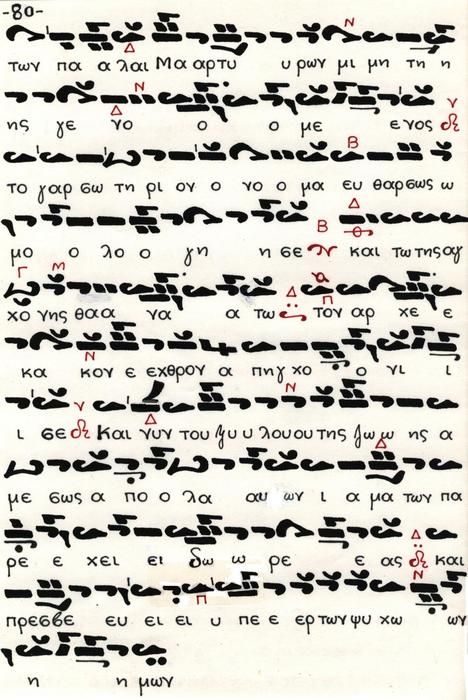 -80-
των πα α λαι Μα αρτυ υ ρων μι μη τη η
ης γε νο ο ο με ε νος
το γαρ σω τη ρι ον ο νο ο μα ευ θαρσως ω
μο ο λο ο γη η σε και τω της αγ
χο νης θα α να α τω τον αρ χε ε
κα κον ε εχθρον α πηγχο ο νι ι
ι σε και νυν του ψυ υ λου ου της ζω ω ης α
με σως α πο ο λα αυ ων ι α μα των πα
ρε ε χει ει δω ω ρε ε ας και
πρεσβε ευ ει ει υ πε ε ερ των ψυ χω ων
η η μων